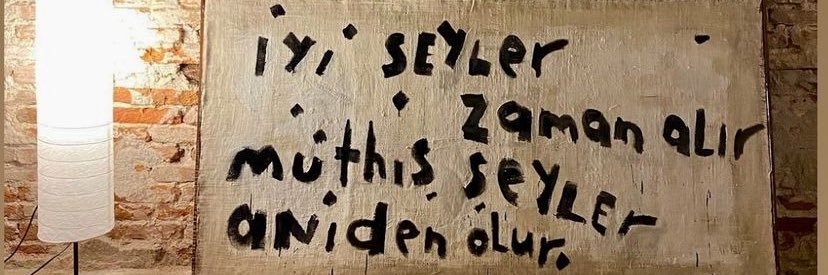 iyi şeyler
zaman alır
müthiş şeyler
aniden olur.